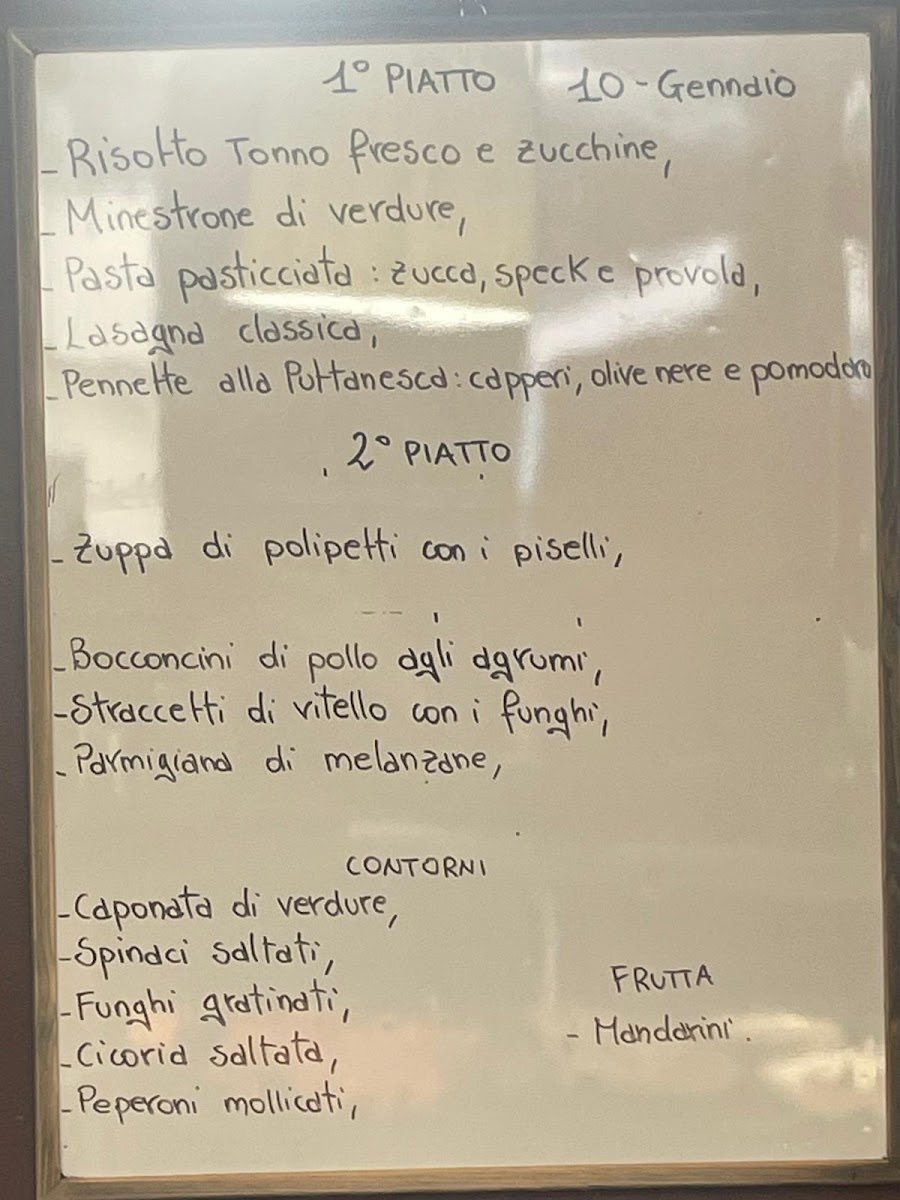 1° PIATTO 10-Gennaio
- Risotto Tonno fresco e zucchine,
- Minestrone di verdure,
- Pasta pasticciata : zucca, speck e provola,
- Lasagna classica,
- Pennette alla Puttanesca: capperi, olive nere e pomodoro
2° PIATTO
- Zuppa di polipetti con i piselli,
- Bocconcini di pollo agli agrumi,
- Straccetti di vitello con i funghi,
- Parmigiana di melanzane,
CONTORNI
- Caponata di verdure,
- Spinaci saltati,
- Funghi gratinati,
- Cicoria saltata,
- Peperoni mollicati,
FRUTTA
- Mandarini.